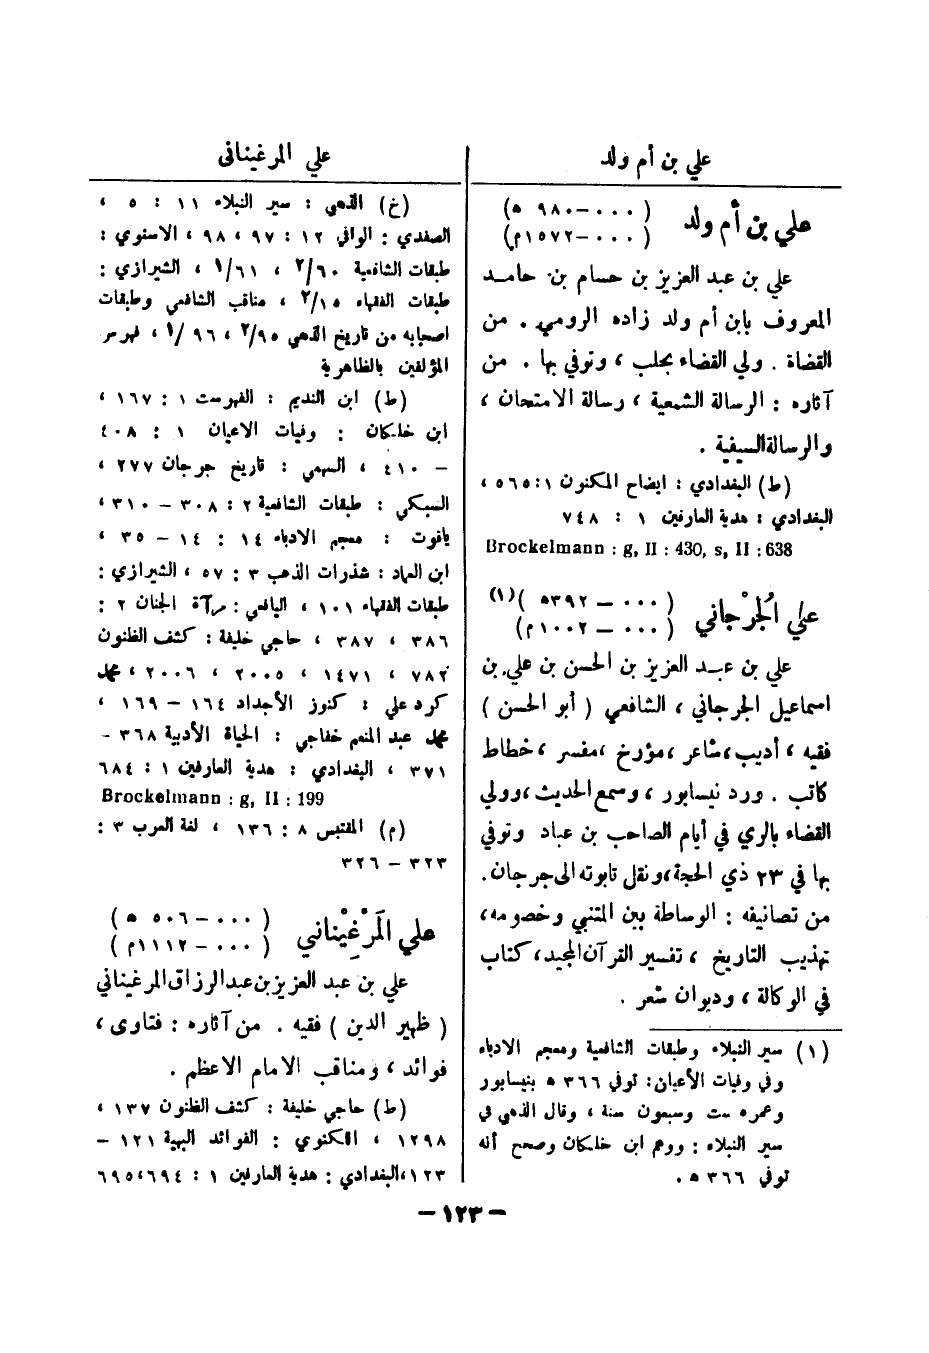 علي بن أم ولد
علي بن أم ولد
( ٠٠٠ – ٩٨٠ ه )
( ٠٠٠ – ١٥٧٢م )
علي بن عبد العزيز بن حسام بن حامد
المعروف بابن أم ولد زاده الرومي . من
القضاة . ولي القضاء بحلب ، وتوفي بها . من
آثاره : الرسالة الشمعية ، رسالة الامتحان ،
والرسالة السيفية .
(ط) البغدادي : ايضاح المكنون ١ : ٥٦٥ ،
البغدادي : هدية العارفين ١ : ٧٤٨
Brockelmann : g, II : 430, s, II : 638
علي الجُرْجاني
( ٠٠٠ – ٣٩٢ه )(١)
( ٠٠٠ – ١٠٠٢م )
علي بن عبد العزيز بن الحسن بن علي بن
اسماعيل الجرجاني ، الشافعي ( أبو الحسن )
فقيه ، أديب ، شاعر ، مؤرخ ، مفسر ، خطاط
كاتب . ورد نيسابور ، وسمع الحديث ، وولي
القضاء بالري في أيام الصاحب بن عباد وتوفي
بها في ٢٣ ذي الحجة ، ونقل تابوته الى جرجان .
من تصانيفه : الوساطة بين المتنبي وخصومه ،
تهذيب التاريخ ، تفسير القرآن المجيد ، كتاب
في الوكالة ، وديوان شعر .
(١) سير النبلاء وطبقات الشافعية ومعجم الادباء
وفي وفيات الأعيان : توفي ٣٦٦ ه بنيسابور
وعمره ست وسبعون سنة ، وقال الذهبي في
سير النبلاء : ووهم ابن خلكان وصحح أنه
توفي ٣٦٦ ه .
علي المرغيناني
(خ) الذهبي : سير النبلاء ١١ : ٥ ،
الصفدي : الوافي ١٢ : ٩٧ ، ٩٨ ، الاسنوي :
طبقات الشافعية ٦٠/٢ ، ٦١/١ ، الشيرازي :
طبقات الفقهاء ١٥/٢ ، مناقب الشافعي وطبقات
اصحابه من تاريخ الذهبي ٩٥/٢ ، ٩٦/١ ، فهرس
المؤلفين بالظاهرية
(ط) ابن النديم : الفهرست ١ : ١٦٧ ،
ابن خلكان : وفيات الاعيان ١ : ٤٠٨
– ٤١٠ ، السهمي : تاريخ جرجان ٢٧٧ ،
السبكي : طبقات الشافعية ٢ : ٣٠٨ – ٣١٠ ،
ياقوت : معجم الادباء ١٤ : ١٤ – ٣٥ ،
ابن العماد : شذرات الذهب ٣ : ٥٧ ، الشيرازي :
طبقات الفقهاء ١٠١ ، اليافعي : مرآة الجنان ٢ :
٣٨٦ ، ٣٨٧ ، حاجي خليفة : كشف الظنون
٧٨٢ ، ١٤٧١ ، ٢٠٠٥ ، ٢٠٠٦ ، محمد
كرد علي : كنوز الأجداد ١٦٤ – ١٦٩ ،
محمد عبد المنعم خفاجي : الحياة الأدبية ٣٦٨ –
٣٧١ ، البغدادي : هدية العارفين ١ : ٦٨٤
Brockelmann : g, II : 199
(م) المقتبس ٨ : ١٣٦ ، لغة العرب ٣ :
٣٢٣ – ٣٢٦
علي المَرْغِيْناني
( ٠٠٠ – ٥٠٦ ه )
( ٠٠٠ – ١١١٢م )
علي بن عبد العزيز بن عبد الرزاق المرغيناني
( ظهير الدين ) فقيه . من آثاره : فتاوى ،
فوائد ، ومناقب الامام الاعظم .
(ط) حاجي خليفة : كشف الظنون ١٣٧ ،
١٢٩٨ ، اللكنوي : الفوائد البهية ١٢١ –
١٢٣ ، البغدادي : هدية العارفين ١ : ٦٩٤ ، ٦٩٥
– ١٢٣ –